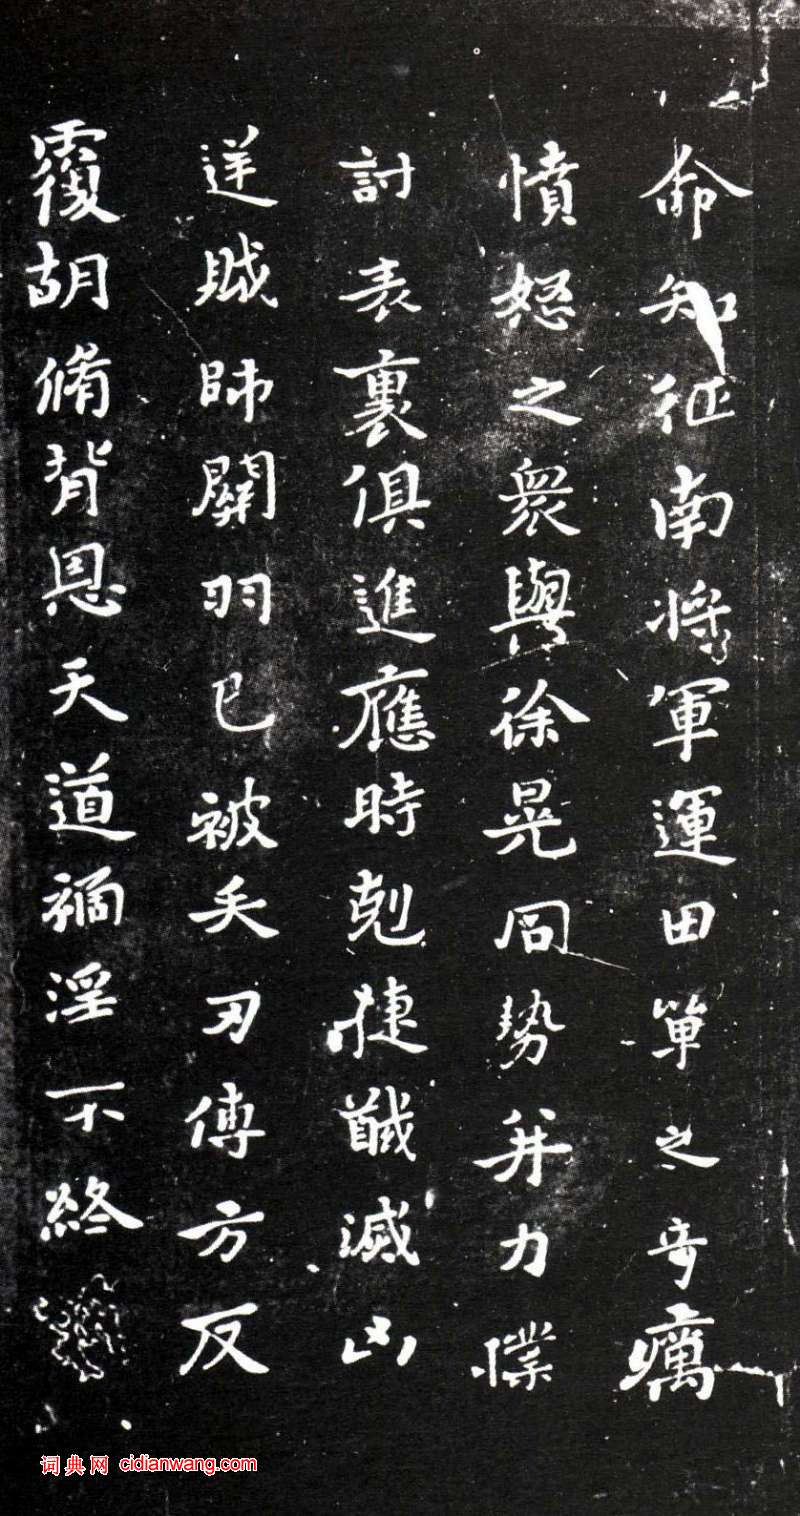 命知征南将軍運田單之奇厲
憤怒之衆與徐晃同勢并力撲
討表裏俱進應時剋捷馘滅凶
逆賊帥關羽已被矢刃傅方反
覆胡脩背恩天道禍淫不終
词典网 cidianwang.com